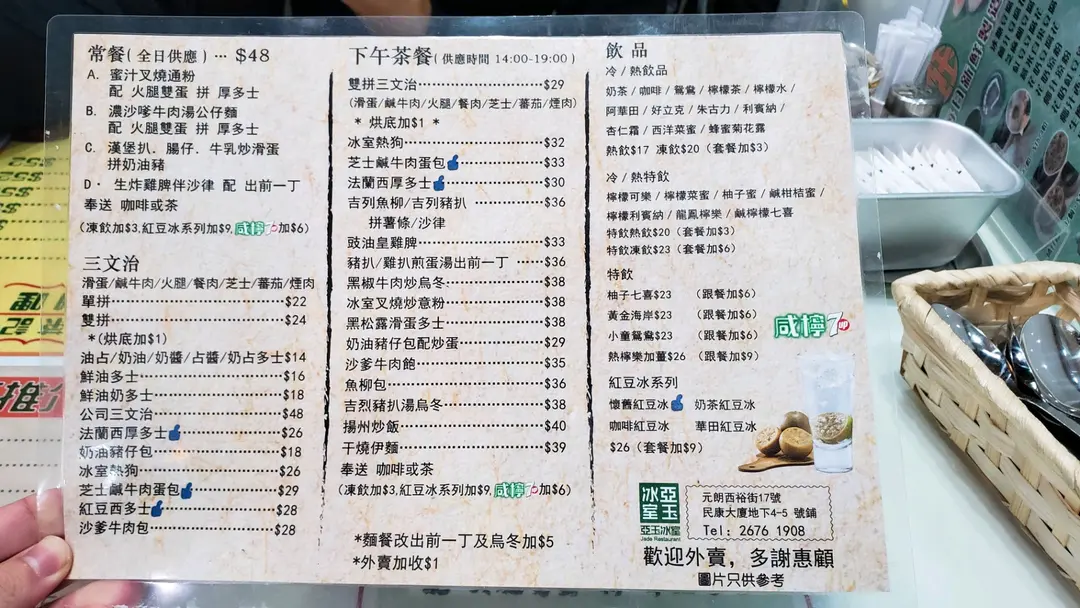 常餐(全日供應) … $48
A. 蜜汁叉燒通粉
配 火腿雙蛋 拼 厚多士
B. 濃沙爹牛肉湯公仔麵
配 火腿雙蛋 拼 厚多士
C. 漢堡扒．腸仔．牛乳炒滑蛋
拼奶油豬
D. 生炸雞脾伴沙律 配 出前一丁
奉送 咖啡或茶
(凍飲加$3,紅豆冰系列加$9,咸檸7加$6)
三文治
滑蛋/鹹牛肉/火腿/餐肉/芝士/蕃茄/煙肉
單拼 $22
雙拼 $24
*(烘底加$1)
油占/奶油/奶醬/占醬/奶占多士$14
鮮油多士 $16
鮮油奶多士 $18
公司三文治 $48
法蘭西厚多士 $26
奶油豬仔包 $18
冰室熱狗 $26
芝士鹹牛肉蛋包 $29
紅豆西多士 $28
沙爹牛肉包 $28
下午茶餐(供應時間 14:00-19:00)
雙拼三文治 $29
(滑蛋/鹹牛肉/火腿/餐肉/芝士/蕃茄/煙肉)
* 烘底加$1 *
冰室熱狗 $32
芝士鹹牛肉蛋包 $33
法蘭西厚多士 $30
吉列魚柳/吉列豬扒 $36
拼薯條/沙律
豉油皇雞脾 $33
豬扒/雞扒煎蛋湯出前一丁 $36
黑椒牛肉炒烏冬 $38
冰室叉燒炒意粉 $38
黑松露滑蛋多士 $38
奶油豬仔包配炒蛋 $29
沙爹牛肉飽 $35
魚柳包 $36
吉烈豬扒湯烏冬 $38
揚州炒飯 $40
干燒伊麵 $39
奉送 咖啡或茶
(凍飲加$3,紅豆冰系列加$9,咸檸7加$6)
*麵餐改出前一丁及烏冬加$5
*外賣加收$1
飲品
冷/熱飲品
奶茶/咖啡/鴛鴦/檸檬茶/檸檬水/
阿華田/好立克/朱古力/利賓納/
杏仁霜/西洋菜蜜/蜂蜜菊花露
熱飲$17 凍飲$20（套餐加$3）
冷/熱特飲
檸檬可樂/檸檬菜蜜/柚子蜜/鹹柑桔蜜/
檸檬利賓納/龍鳳檸樂/鹹檸檬七喜
特飲熱飲$20（套餐加$3）
特飲凍飲$23（套餐加$6）
特飲
柚子七喜$23 （跟餐加$6）
黃金海岸$23 （跟餐加$6）
小童鴛鴦$23 （跟餐加$6）
熱檸樂加薑$26 （跟餐加$9）
咸檸7
紅豆冰系列
懷舊紅豆冰 奶茶紅豆冰
咖啡紅豆冰 華田紅豆冰
$26（套餐加$9）
亞玉冰室
亞玉冰室
Jade Restaurant
元朗西裕街17號
民康大廈地下4-5 號鋪
Tel: 2676 1908
歡迎外賣，多謝惠顧
圖片只供參考
$52